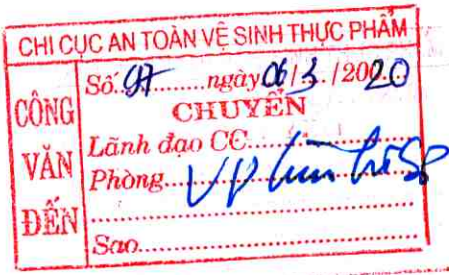 CHI CỤC AN TOÀN VỆ SINH THỰC PHẨM
CÔNG VĂN ĐẾN
Số.97.........ngày 06/3./2020...
CHUYỂN
Lãnh đạo CC...............
Phòng...VP lưu hồ sơ
Sao.............................